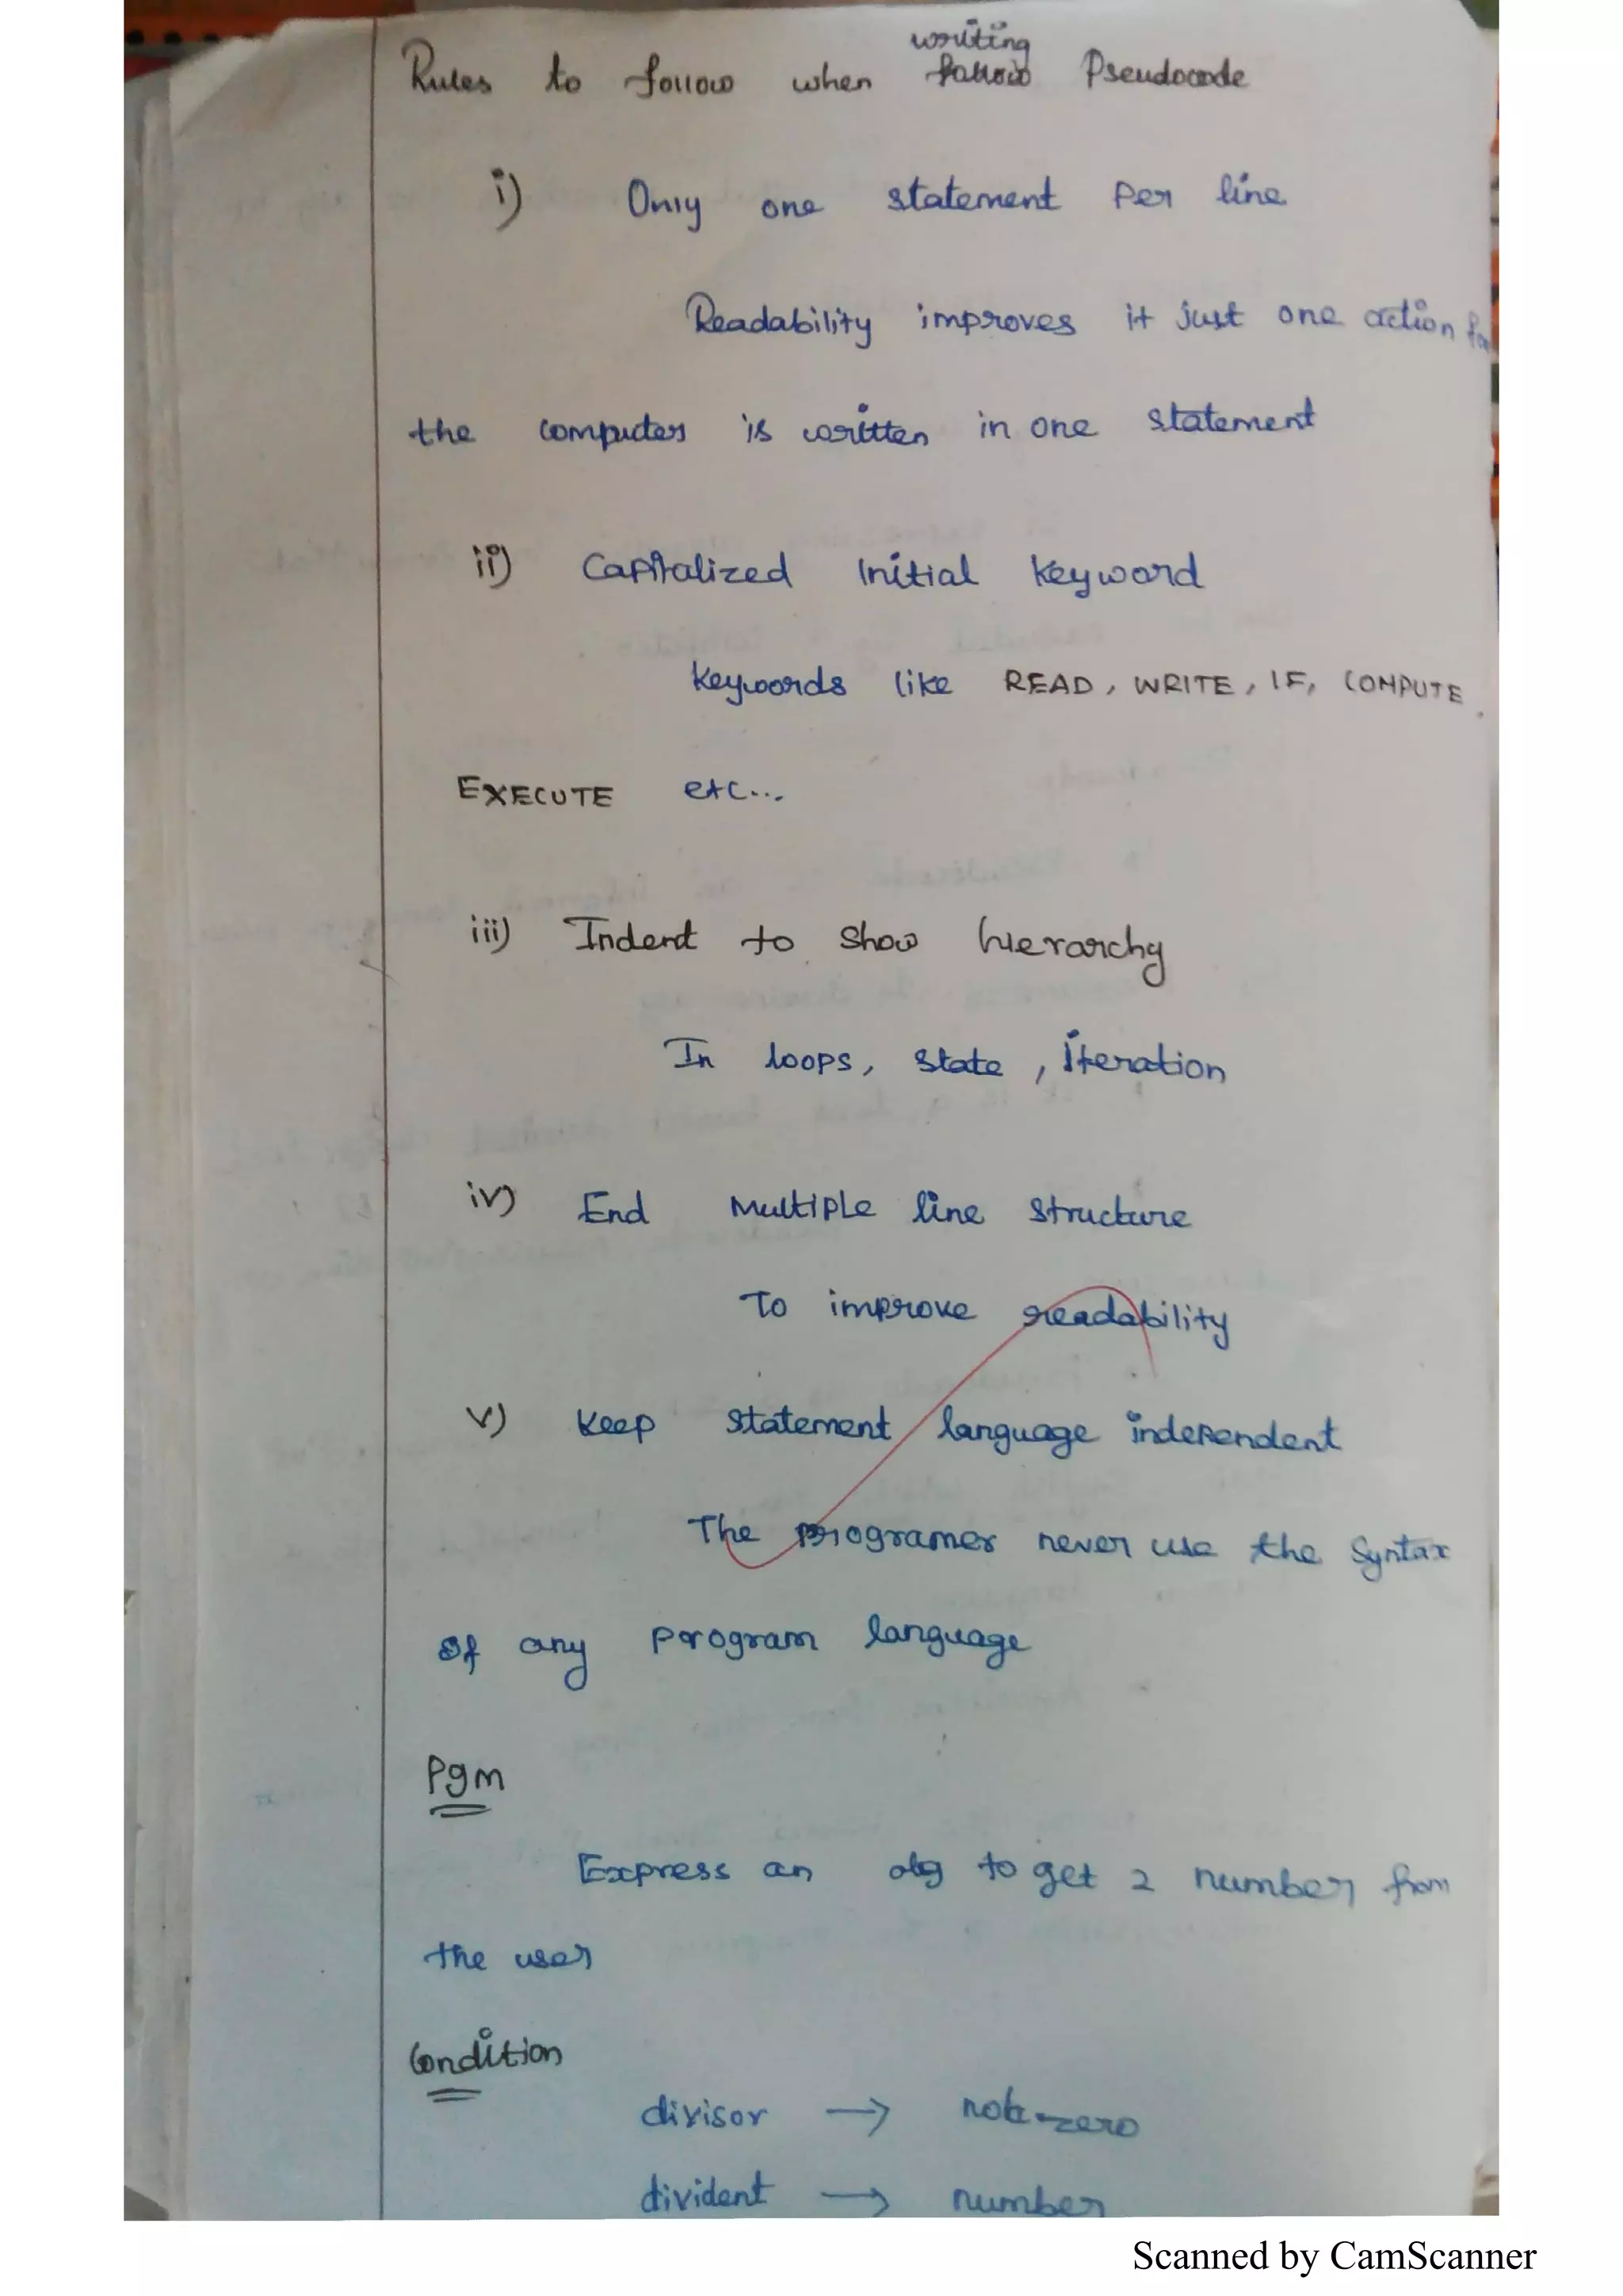 writing
Rules to follow when follow Pseudocode
i) Only one statement Per line
Readability improves it just one action for
the computer is written in one statement
ii) Capitalized Initial Keyword
Keywords like READ, WRITE, IF, COMPUTE,
EXECUTE etc...
iii) Indent to show hierarchy
In loops, state, iteration
iv) End Multiple line structure
To improve readability
v) Keep statement language independent
The programer never use the Syntax
of any program language
Pgm
Express an alg to get 2 number from
the user
Condition
divisor → not-zero
divident → number
Scanned by CamScanner